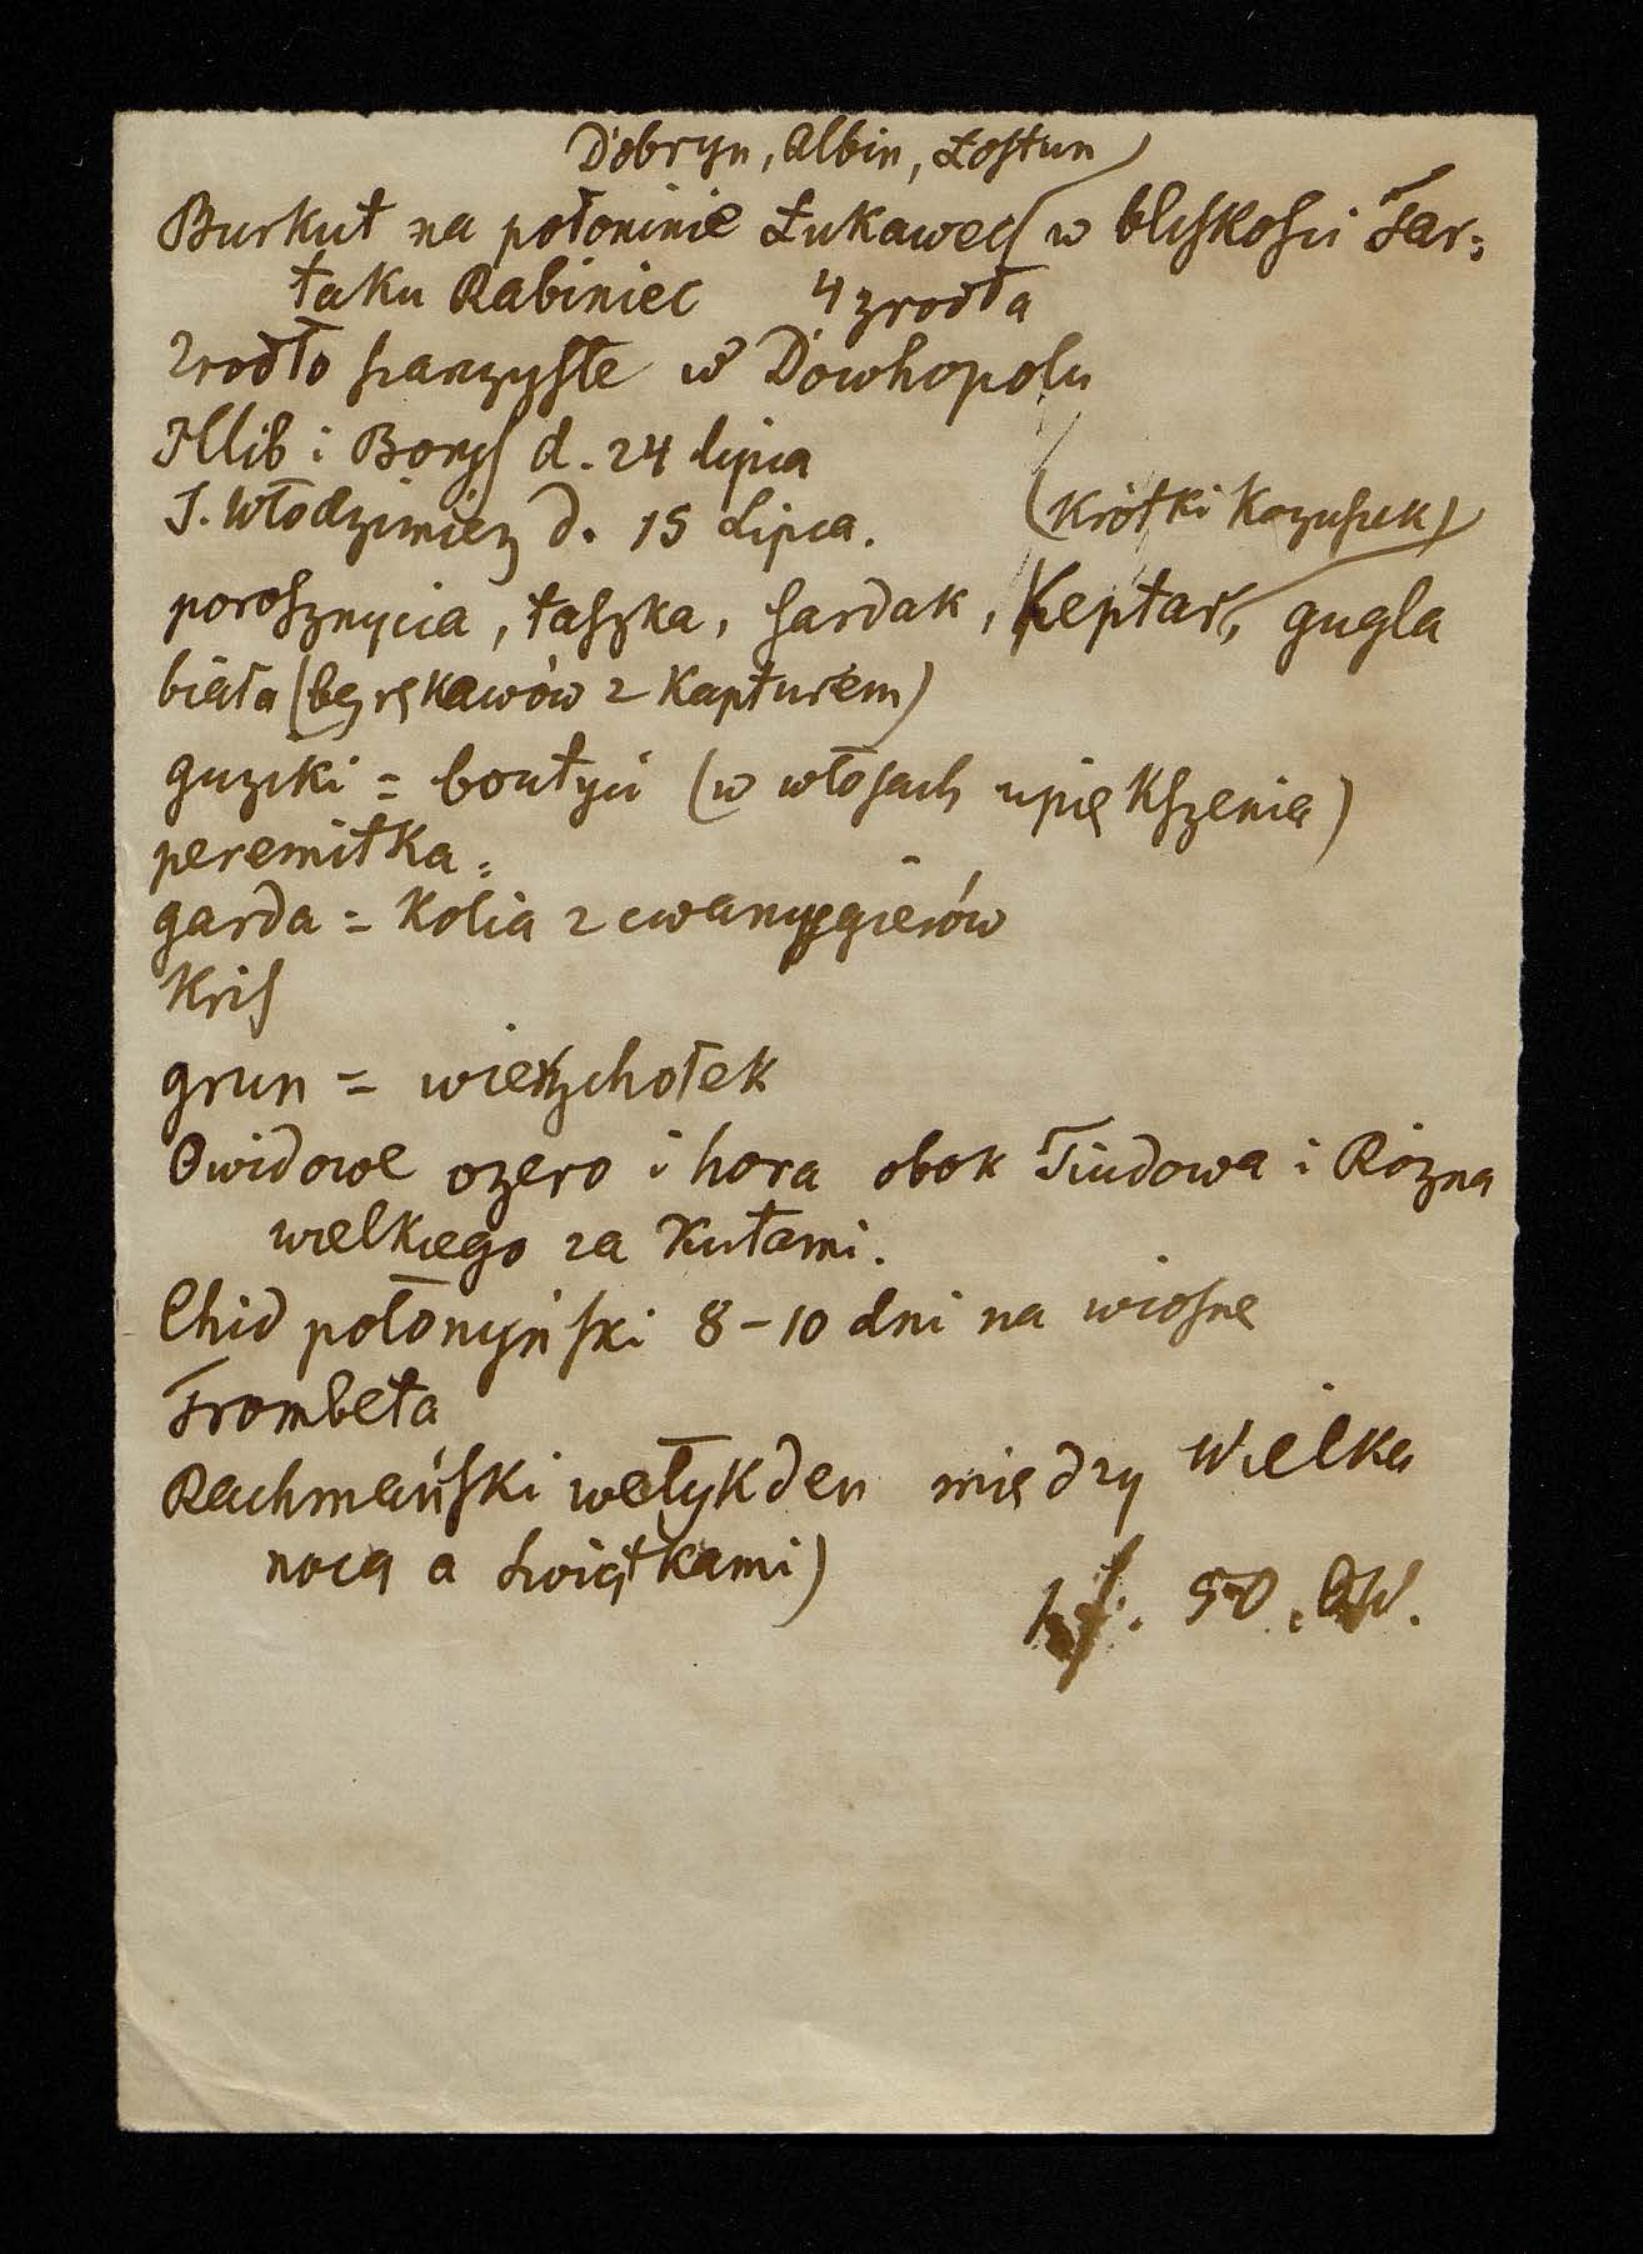 Dobryn, Albin, Łostun)
Burkut na połoninie Łukawec w bliskości Tar-
taku Rabiniec 4 zrodła
Zrodło siarczyste w Dowhopolu
Hlib i Borys d. 24 lipca
S. Włodzimierz d. 15 Lipca. (krótki kozuszek)
porosznycia, taszka, sardak, Keptar, gugla
biała (bez rękawów z Kapturem)
guziki = boutyci (w włosach upiększenia)
peremitka =
garda = Kolia z cwancygierów
Kris
grun = wierzchołek
Owidowe ozero i hora obok Tiudowa i Rózna
wielkiego za Kutami.
Chid połonyński 8-10 dni na wiosnę
Trombeta
Rachmański wełykden między Wielka
nocą a świątkami)
50. W.